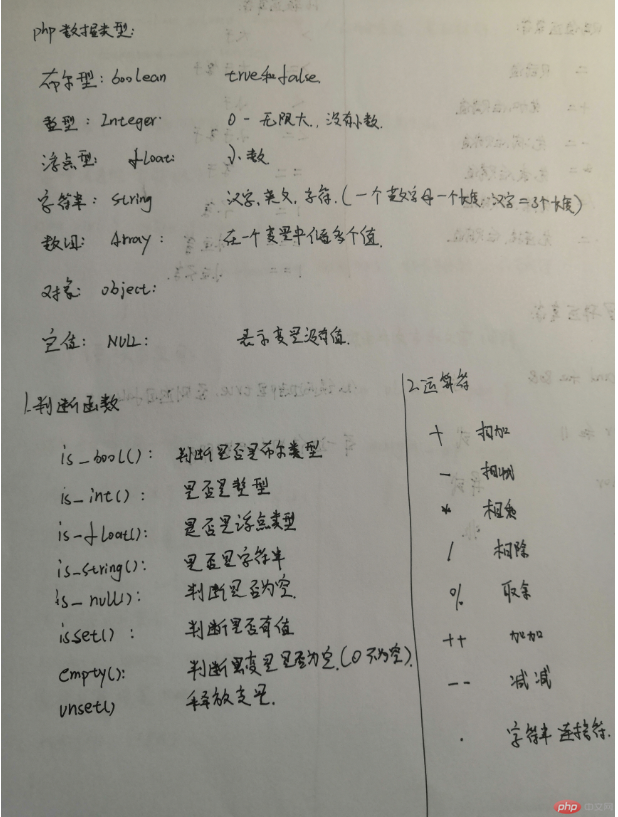 php数据类型:
布尔型: boolean true和false.
整型: Integer. 0 - 无限大, 没有小数.
浮点型: float: 小数
字符串: String 汉字, 英文, 字符. (一个英文字母一个长度, 汉字=3个长度)
数组: Array: 在一个变量中储多个值.
对象: object:
空值: NULL: 表示变量没有值.
1.判断函数
is_bool(): 判断是否是布尔类型
is_int(): 是否是整型
is_float(): 是否是浮点类型
is_string(): 是否是字符串
is_null(): 判断是否为空.
isset(): 判断是否有值
empty(): 判断变量是否为空.(0不为空).
unset() 释放变量.
2.运算符
+ 相加
- 相减
* 相乘
/ 相除
% 取余
++ 加加
-- 减减
. 字符串连接符.
php 中文网